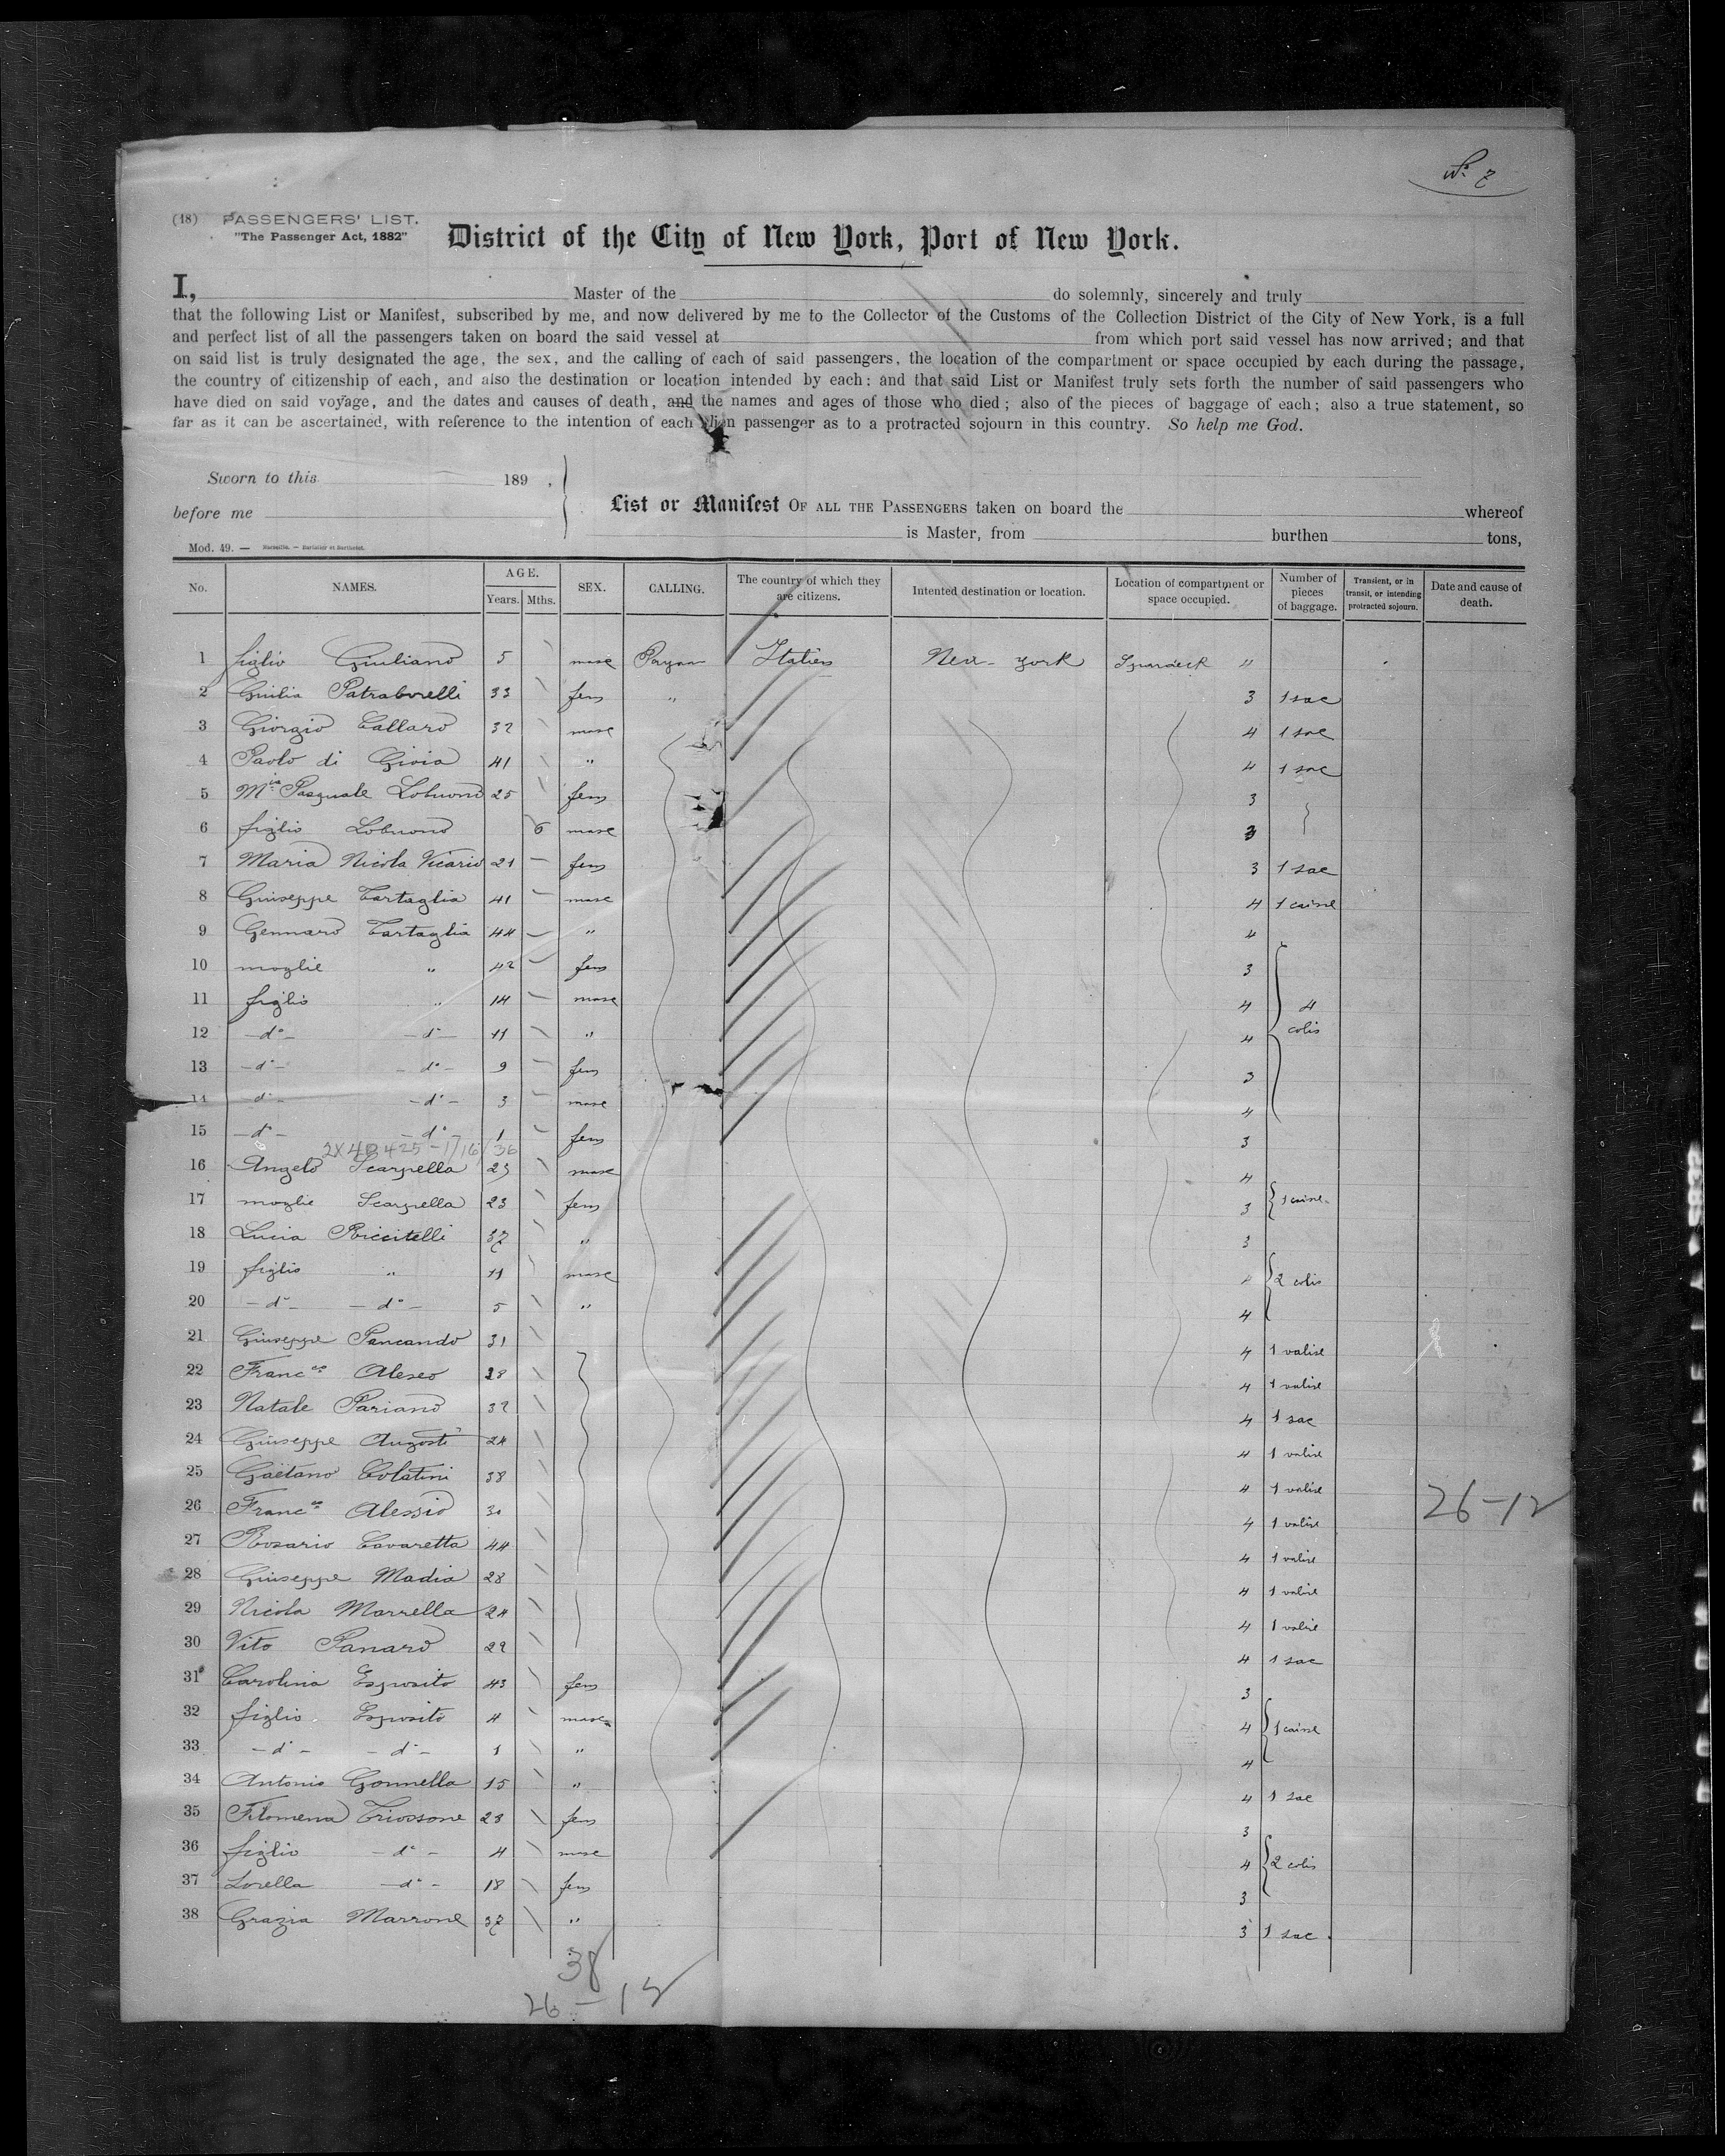 Nº 7
(18) PASSENGERS' LIST.
"The Passenger Act, 1882"
District of the City of New York, Port of New York.
I, Master of the do solemnly, sincerely and truly
that the following List or Manifest, subscribed by me, and now delivered by me to the Collector of the Customs of the Collection District of the City of New York, is a full
and perfect list of all the passengers taken on board the said vessel at from which port said vessel has now arrived; and that
on said list is truly designated the age, the sex, and the calling of each of said passengers, the location of the compartment or space occupied by each during the passage,
the country of citizenship of each, and also the destination or location intended by each: and that said List or Manifest truly sets forth the number of said passengers who
have died on said voyage, and the dates and causes of death, and the names and ages of those who died; also of the pieces of baggage of each; also a true statement, so
far as it can be ascertained, with reference to the intention of each alien passenger as to a protracted sojourn in this country. So help me God.
Sworn to this 189 ,
before me
List or Manifest OF ALL THE PASSENGERS taken on board the whereof
is Master, from burthen tons,
Mod. 49. — Marseille. — Barlatier et Barthelet.
No. NAMES. AGE. Years. Mths. SEX. CALLING. The country of which they are citizens. Intented destination or location. Location of compartment or space occupied. Number of pieces of baggage. Transient, or in transit, or intending protracted sojourn. Date and cause of death.
1 figlio Giuliano 5 masc Italien New-York "
2 Giulia 33 fem " 3 1 sac
3 Giorgio Callaro 32 masc 4 1 sac
4 Paolo di Gioia 41 " 4 1 sac
5 Mia Pasquale Lobuono 25 fem 3
6 figlio Lobuono 6 masc 3
7 Maria Nicola Vicario 21 fem 3 1 sac
8 Giuseppe Tartaglia 41 masc 4 1 caisse
9 Gennaro Tartaglia 44 " 4
10 moglie " 42 fem 3
11 figlio " 14 masc 4 4
12 - dº - - dº - 11 " 4 colis
13 - dº - - dº - 9 fem 3
14 - dº - - dº - 3 masc 4
15 - dº - - dº - 1 fem 3
2X4B425-1/16/36
16 Angelo Scarpella 23 masc 4
17 moglie Scarpella 23 fem 3 1 caisse
18 Lucia Riccitelli 37 " 3
19 figlio " 11 masc 4 2 colis
20 - dº - - dº - 5 " 4
21 Giuseppe Pancando 31 4 1 valise
22 Francco Aleseo 28 4 1 valise
23 Natale Pariano 32 4 1 sac
24 Giuseppe Augosti 24 4 1 valise
25 Gaëtano Colatini 38 4 1 valise
26 Francco Alessio 30 4 1 valise
26-12
27 Rosario Cavaretta 44 4 1 valise
28 Giuseppe Madia 28 4 1 valise
29 Nicola Marrella 24 4 1 valise
30 Vito Panaro 22 4 1 sac
31 Carolina Esposito 43 fem 3
32 figlio Esposito 4 masc 4 1 caisse
33 - dº - - dº - 1 " 4
34 Antonio Gonnella 15 " 4 1 sac
35 Filomena 23 fem 3
36 figlio - dº - 4 masc 4 2 colis
37 Sorella - dº - 18 fem 3
38 Grazia Marrone 37 " 3 1 sac
38
26-12